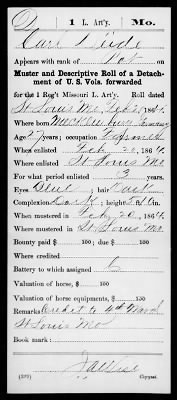 1 L. Art'y. Mo.
Carl
Appears with rank of Pvt on
Muster and Descriptive Roll of a Detachment of U. S. Vols. forwarded
for the 1 Reg't Missouri L. Art'y. Roll dated
St Louis Mo, Feb 20, 1864.
Where born Mecklenburg, Germany
Age 27 years; occupation
When enlisted Feb, 1864.
Where enlisted St Louis Mo
For what period enlisted 3 years.
Eyes Blue; hair Dark
Complexion Dark; height ft. in.
When mustered in Feb 20, 1864.
Where mustered in St Louis Mo.
Bounty paid $ 100; due $ 100
Where credited
Battery to which assigned
Valuation of horse, $ 100
Valuation of horse equipments, $ 100
Remarks: Credit to 4th Ward
St Louis Mo
Book mark:
(339) Copyist.